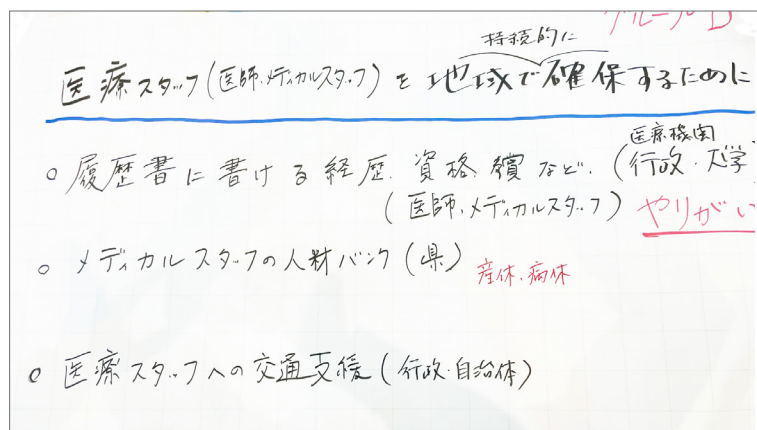 グループD
持続的に
医療スタッフ(医師、メディカルスタッフ)を地域で確保するために
医療機関
○履歴書に書ける経歴、資格、賞など、(行政・大学
(医師、メディカルスタッフ) やりがい
○メディカルスタッフの人材バンク(県)
産休、病休
○医療スタッフへの交通支援(行政・自治体)